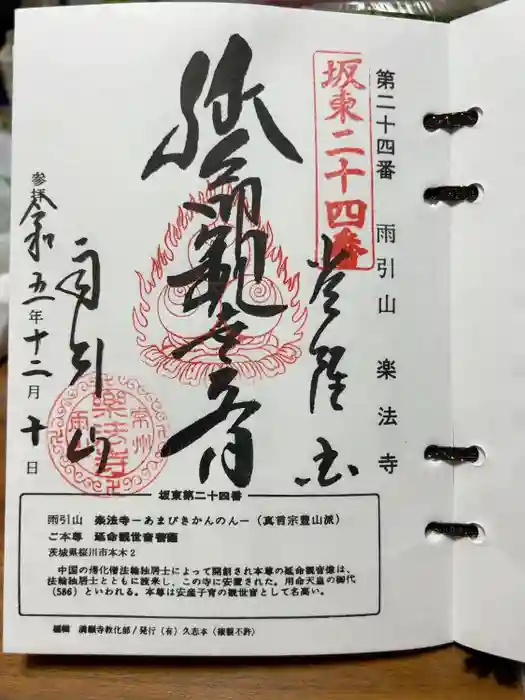 第二十四番 雨引山 楽法寺
坂東二十四番
参拝 令和五年十二月十日
雨引山
坂東第二十四番
雨引山 楽法寺ーあまびきかんのんー（真言宗豊山派）
ご本尊 延命観世音菩薩
茨城県桜川市本木2
中国の帰化僧法輪独居士によって開創され本尊の延命観音像は、
法輪独居士とともに渡来し、この寺に安置された。用命天皇の御代
（586）といわれる。本尊は安産子育の観世音として名高い。
編輯 満願寺教化部/発行（有）久志本（複製不許）